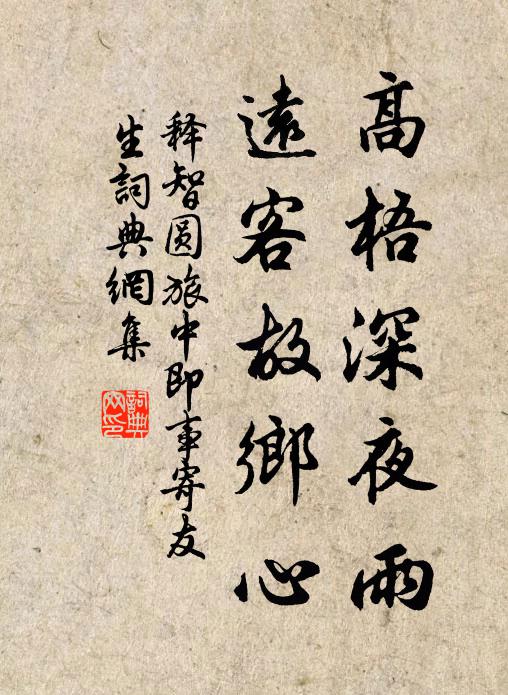 高梧深夜雨
遠客故鄉心
释智圆旅中即事寄友
生詞典網集
詞典
网印